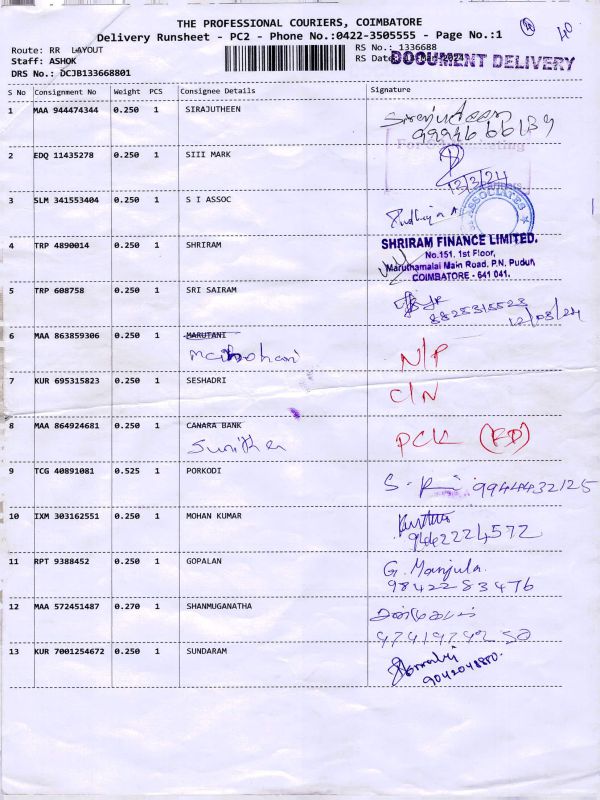 THE PROFESSIONAL COURIERS, COIMBATORE
Delivery Runsheet - PC2 - Phone No.:0422-3505555 - Page No.:1
40
Route: RR LAYOUT
RS No.: 1336688
Staff: ASHOK
RS Date
DOCUMENT DELIVERY
DRS No.: DCJB133668801
S No Consignment No Weight PCS Consignee Details Signature
1 MAA 944474344 0.250 1 SIRAJUTHEEN
2 EDQ 11435278 0.250 1 SIII MARK
13/3/24
3 SLM 341553404 0.250 1 S I ASSOC
ASSOCIATES
4 TRP 4890014 0.250 1 SHRIRAM
SHRIRAM FINANCE LIMITED.
No.151, 1st Floor,
Maruthamalai Main Road, P.N. Pudur,
COIMBATORE - 641 041.
5 TRP 608758 0.250 1 SRI SAIRAM
8825315523
12/03/24
6 MAA 863859306 0.250 1 MARUTANI
N/P
7 KUR 695315823 0.250 1 SESHADRI
C/N
8 MAA 864924681 0.250 1 CANARA BANK
PCK (RD)
9 TCG 40891081 0.525 1 PORKODI
9944432125
10 IXM 303162551 0.250 1 MOHAN KUMAR
9442224572
11 RPT 9388452 0.250 1 GOPALAN
G. Manjula
9842283476
12 MAA 572451487 0.270 1 SHANMUGANATHA
13 KUR 7001254672 0.250 1 SUNDARAM